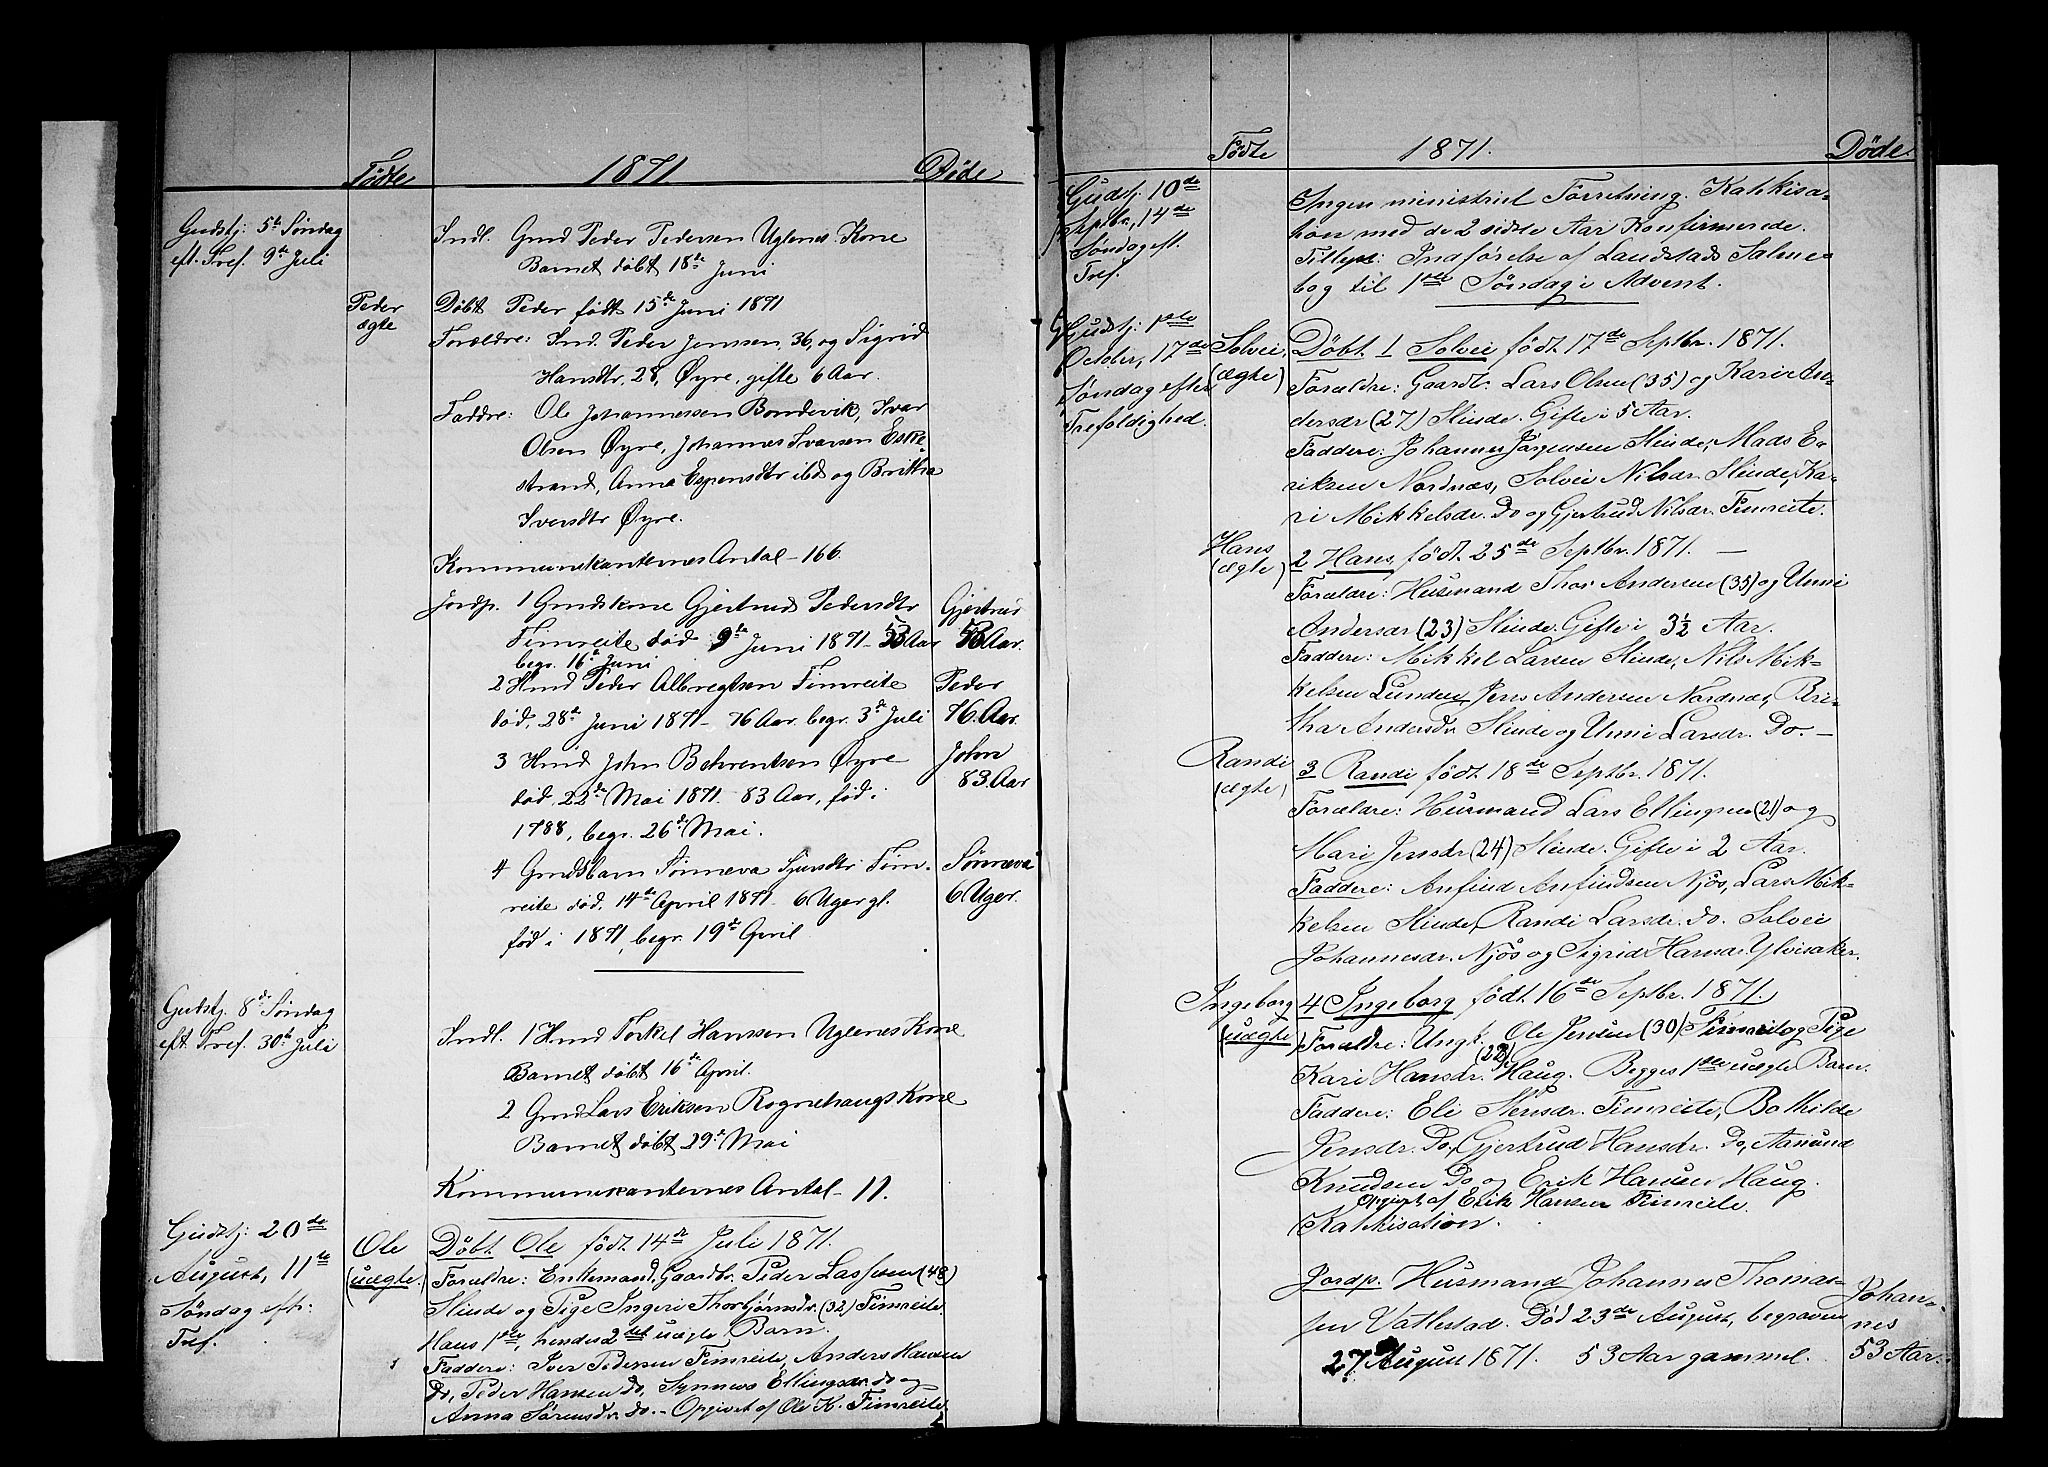 Fødte 1871. Døde
Gudstj: 5te Søndag
eft. Tref. 9de Juli
Indl. Gmd Peder Pedersen Uglenes Kone
Barnet døbt 18de Juni
Peder
ægte
Døbt Peder født 15de Juni 1871
Forældre: Ind. Peder Jenssen, 36, og Sigrid
Hansdtr, 28, Øyre, gifte 6 Aar.
Faddre: Ole Johannessen Bondevik, Ivar
Olsen Øyre, Johannes Ivarsen Eske
strand, Anna Espensdtr ibd og Brithа
Iversdtr Øyre.
Kommunikanternes Antal - 166
Jordp. 1 Gmdskone Gjertrud Pedersdtr
Fimreite død 9de Juni 1871 - 53 Aar
begr. 16de Juni
Gjertrud
53 Aar.
2 Hmd Peder Albregtsen Fimreite
død, 28de Juni 1871 - 76 Aar. begr. 3de Juli
Peder
76 Aar.
3 Hmd John Behrentsen Øyre
død, 22de Mai 1871. 83 Aar, fød i
1788, begr. 26de Mai.
John
83 Aar
4 Gmdsbarn Sønneva Sjursdtr Fim-
reite død. 14de April 1871 - 6 Uger gl.
fød i 1871, begr. 19de April
Sønneva
6 Uger.
Gudstj. 8de Søndag
eft. Tref. 30te Juli
Indl. 1 Hmd Torkel Hanssen Uglenes Kone
Barnet døbt 16de April.
2 Gmd Lars Eriksen Rognehaugs Kone
Barnet døbt 29de Mai
Kommunikanternes Antal - 11.
Gudstj: 20de
August, 11te
Søndag eft:
Tref.
Ole
(uægte.)
Døbt Ole født 14de Juli 1871.
Forældre: Enkemand, Gaardbr. Peder Lassesen (48)
Slinde og Pige Ingeri Thorbjørnsdr. (32) Fimreite.
Hans 1ste, hendes 2det uægte Barn.
Faddere: Iver Pedersen Fimreite, Anders Hansen
do, Peder Hansen do, Synneva Ellingsdr do og
Anna Sørensdr do. - Opgivet af Ole K. Fimreite.
Fødte 1871. Døde.
Gudstj. 10de
Sptbr, 14de
Søndag eft.
Tref.
Ingen ministriel Forretning. Katekisa-
tion med de 2 sidste Aar Konfirmerede.
Tillyst: Indførelse af Landstads Salme-
bog til 1ste Søndag i Advent.
Gudstj: 1ste
October, 17de
Søndag efter
Trefoldighed.
Solvei,
(ægte)
Døbt. 1 Solvei født 17de Septbr. 1871.
Forældre: Gaardbr. Lars Olsen (35) og Kari An-
dersdr (27) Slinde. Gifte i 5 Aar.
Faddere: Johannes Jørgensen Slinde, Mads E-
riksen Nordnæs, Solvei Nilsdr Slinde, Ka-
ri Mikkelsdr. Do og Gjertrud Nilsdr. Fimreite.
Hans
(ægte)
2 Hans, født 25de Septbr. 1871. -
Forældre: Husmand Thor Andersen (35) og Unni
Andersdr (23) Slinde. Gifte i 3½ Aar.
Faddere: Mikkel Larsen Slinde, Nils Mik-
kelsen Lunden, Jens Andersen Nordnæs, Bri-
tha Andersdr Slinde og Unni Larsdr. Do. -
Randi
(ægte)
3 Randi født 18de Septbr. 1871.
Forældre: Husmand Lars Ellingsen (21) og
Mari Jensdr (24) Slinde. Gifte i 2 Aar.
Faddere: Anfind Anfindsen Njøs, Lars Mik-
kelsen Slinde, Randi Larsdr. do. Solvei
Johannesdr. Njøs og Sigrid Hansdr. Ylvisaker.
Ingeborg
(uægte)
4 Ingeborg født 16de Septbr. 1871.
Forældre: Ungk. Ole Jensen (30) Fimreite og Pige
Kari Hansdr. (22) Haug. Begges 1ste uægte Barn.
Faddere: Eli Stensdr. Fimreite, Bothilde
Jensdr. Do, Gjertrud Hansdr. Do, Aamund
Knudsen Do og Erik Hansen Haug.
Opgivet af Erik Hansen Fimreite.
Katekisation.
Jordp. Husmand Johannes Thomas-
sen Vatlestad. Død 23de August, begraven
27 August 1871. 53 Aar gammel.
Johan-
nes
53 Aar.